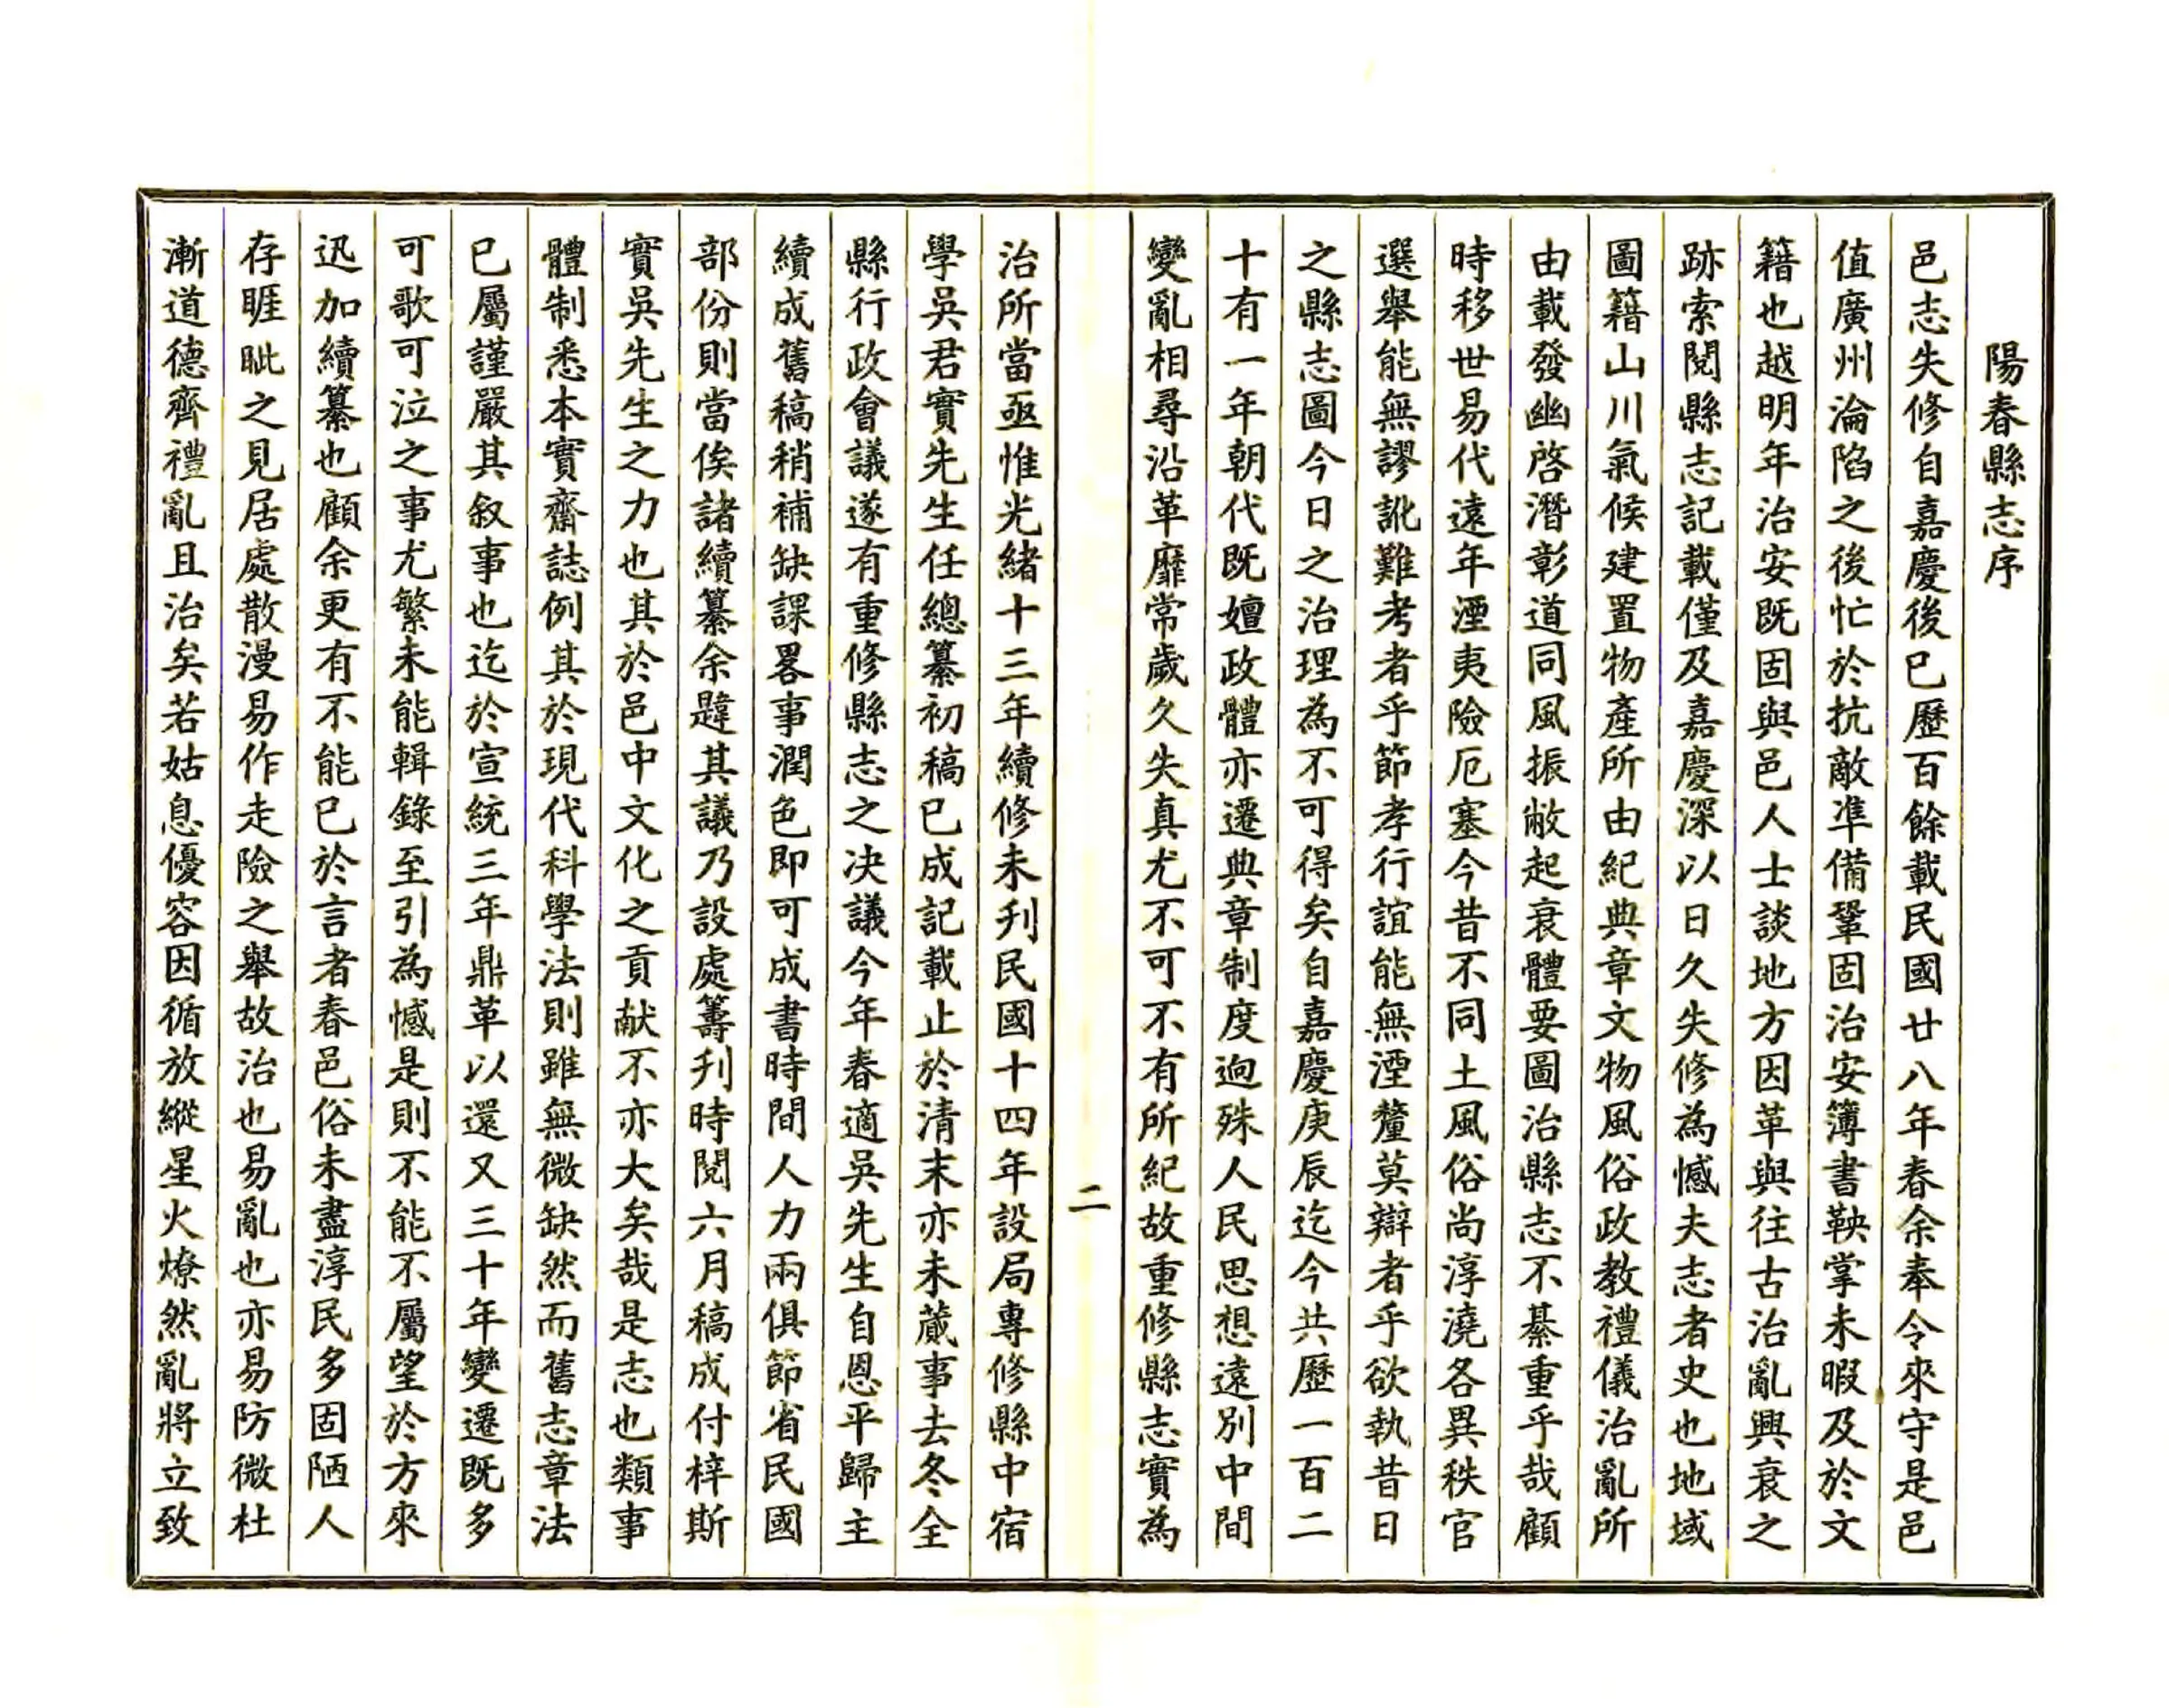 陽春縣志序
邑志失修自嘉慶後已歷百餘載民國廿八年春余奉令來守是邑
值廣州淪陷之後忙於抗敵準備鞏固治安簿書鞅掌未暇及於文
籍也越明年治安既固與邑人士談地方因革與往古治亂興衰之
跡索閱縣志記載僅及嘉慶深以日久失修為憾夫志者史也地域
圖籍山川氣候建置物產所由紀典章文物風俗政教禮儀治亂所
由載發幽啓潛彰道同風振敝起衰體要圖治縣志不綦重乎哉顧
時移世易代遠年湮夷險厄塞今昔不同土風俗尚淳澆各異秩官
選舉能無謬訛難考者乎節孝行誼能無湮釐莫辯者乎欲執昔日
之縣志圖今日之治理為不可得矣自嘉慶庚辰迄今共歷一百二
十有一年朝代既嬗政體亦遷典章制度逈殊人民思想遠別中間
變亂相尋沿革靡常歲久失真尤不可不有所紀故重修縣志實為
二
治所當亟惟光緒十三年續修未刋民國十四年設局專修縣中宿
學吳君實先生任總纂初稿已成記載止於清末亦未蕆事去冬全
縣行政會議遂有重修縣志之决議今年春適吳先生自恩平歸主
續成舊稿稍補缺課畧事潤色即可成書時間人力兩俱節省民國
部份則當俟諸續纂余韙其議乃設處籌刋時閱六月稿成付梓斯
實吳先生之力也其於邑中文化之貢献不亦大矣哉是志也類事
體制悉本實齋誌例其於現代科學法則雖無微缺然而舊志章法
已屬謹嚴其叙事也迄於宣統三年鼎革以還又三十年變遷既多
可歌可泣之事尤繁未能輯錄至引為憾是則不能不屬望於方來
迅加續纂也顧余更有不能已於言者春邑俗未盡淳民多固陋人
存睚眦之見居處散漫易作走險之舉故治也易亂也亦易防微杜
漸道德齊禮亂且治矣若姑息優容因循放縱星火燎然亂將立致